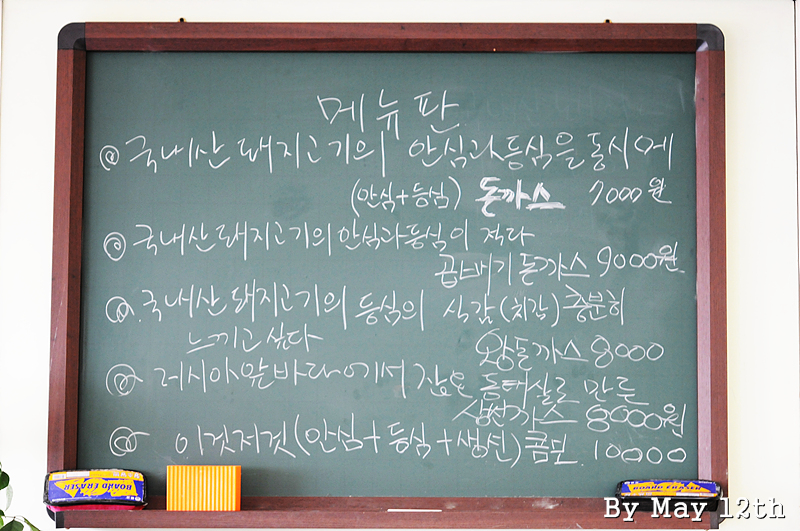 메뉴판
@ 국내산 돼지고기의 안심과 등심을 동시에
(안심+등심) 돈까스 7000원
@ 국내산 돼지고기의 안심과 등심이 적다
곱배기 돈까스 9000원
@. 국내산 돼지고기의 등심의 식감(치감) 충분히
느끼고 싶다
왕돈까스 8000
@ 러시아 앞바다에서 잡은 동태살로 만든
생선까스 8000원
@ 이것저것(안심+등심+생선) 콤보. 10000
BOARD ERASER
BOARD ERASER
By May 12th